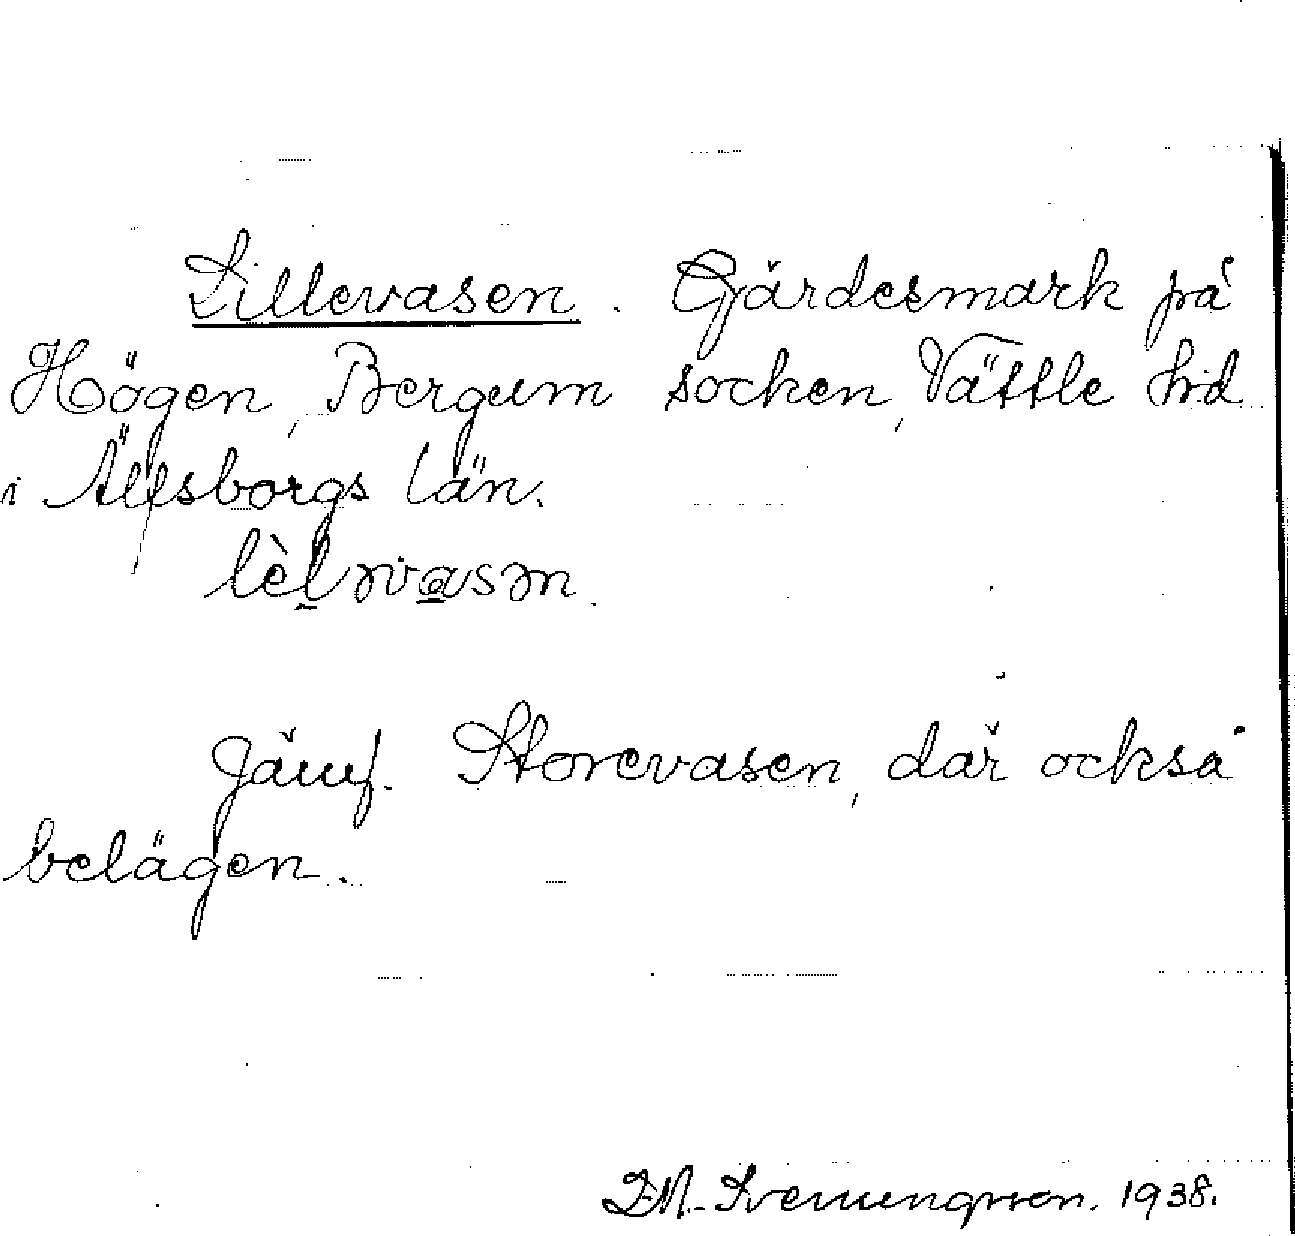 Lillevasen. Gärdesmark på
Högen, Bergum socken, Vättle hd
i Älfsborgs län.
lèləvɑsən.
Jämf. Storevasen, där också
belägen.
Svenungsson. 1938.